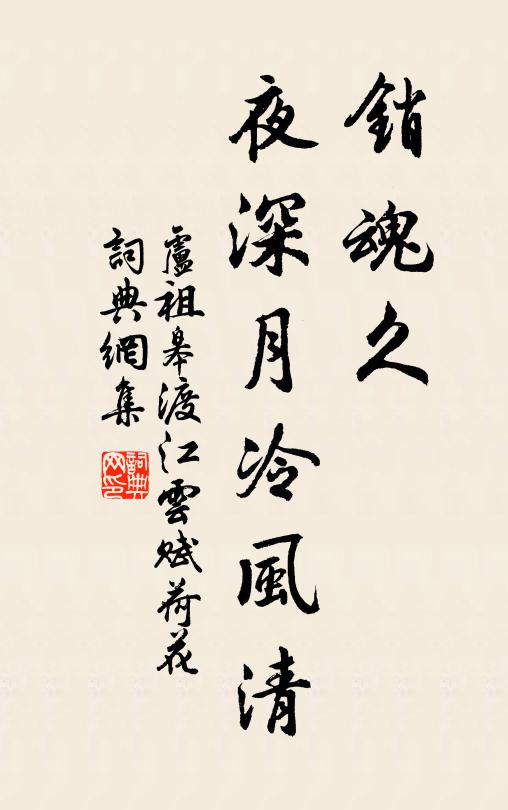 銷魂久
夜深月冷風清
盧祖皋渡江雲賦荷花
詞典網集
詞典網印